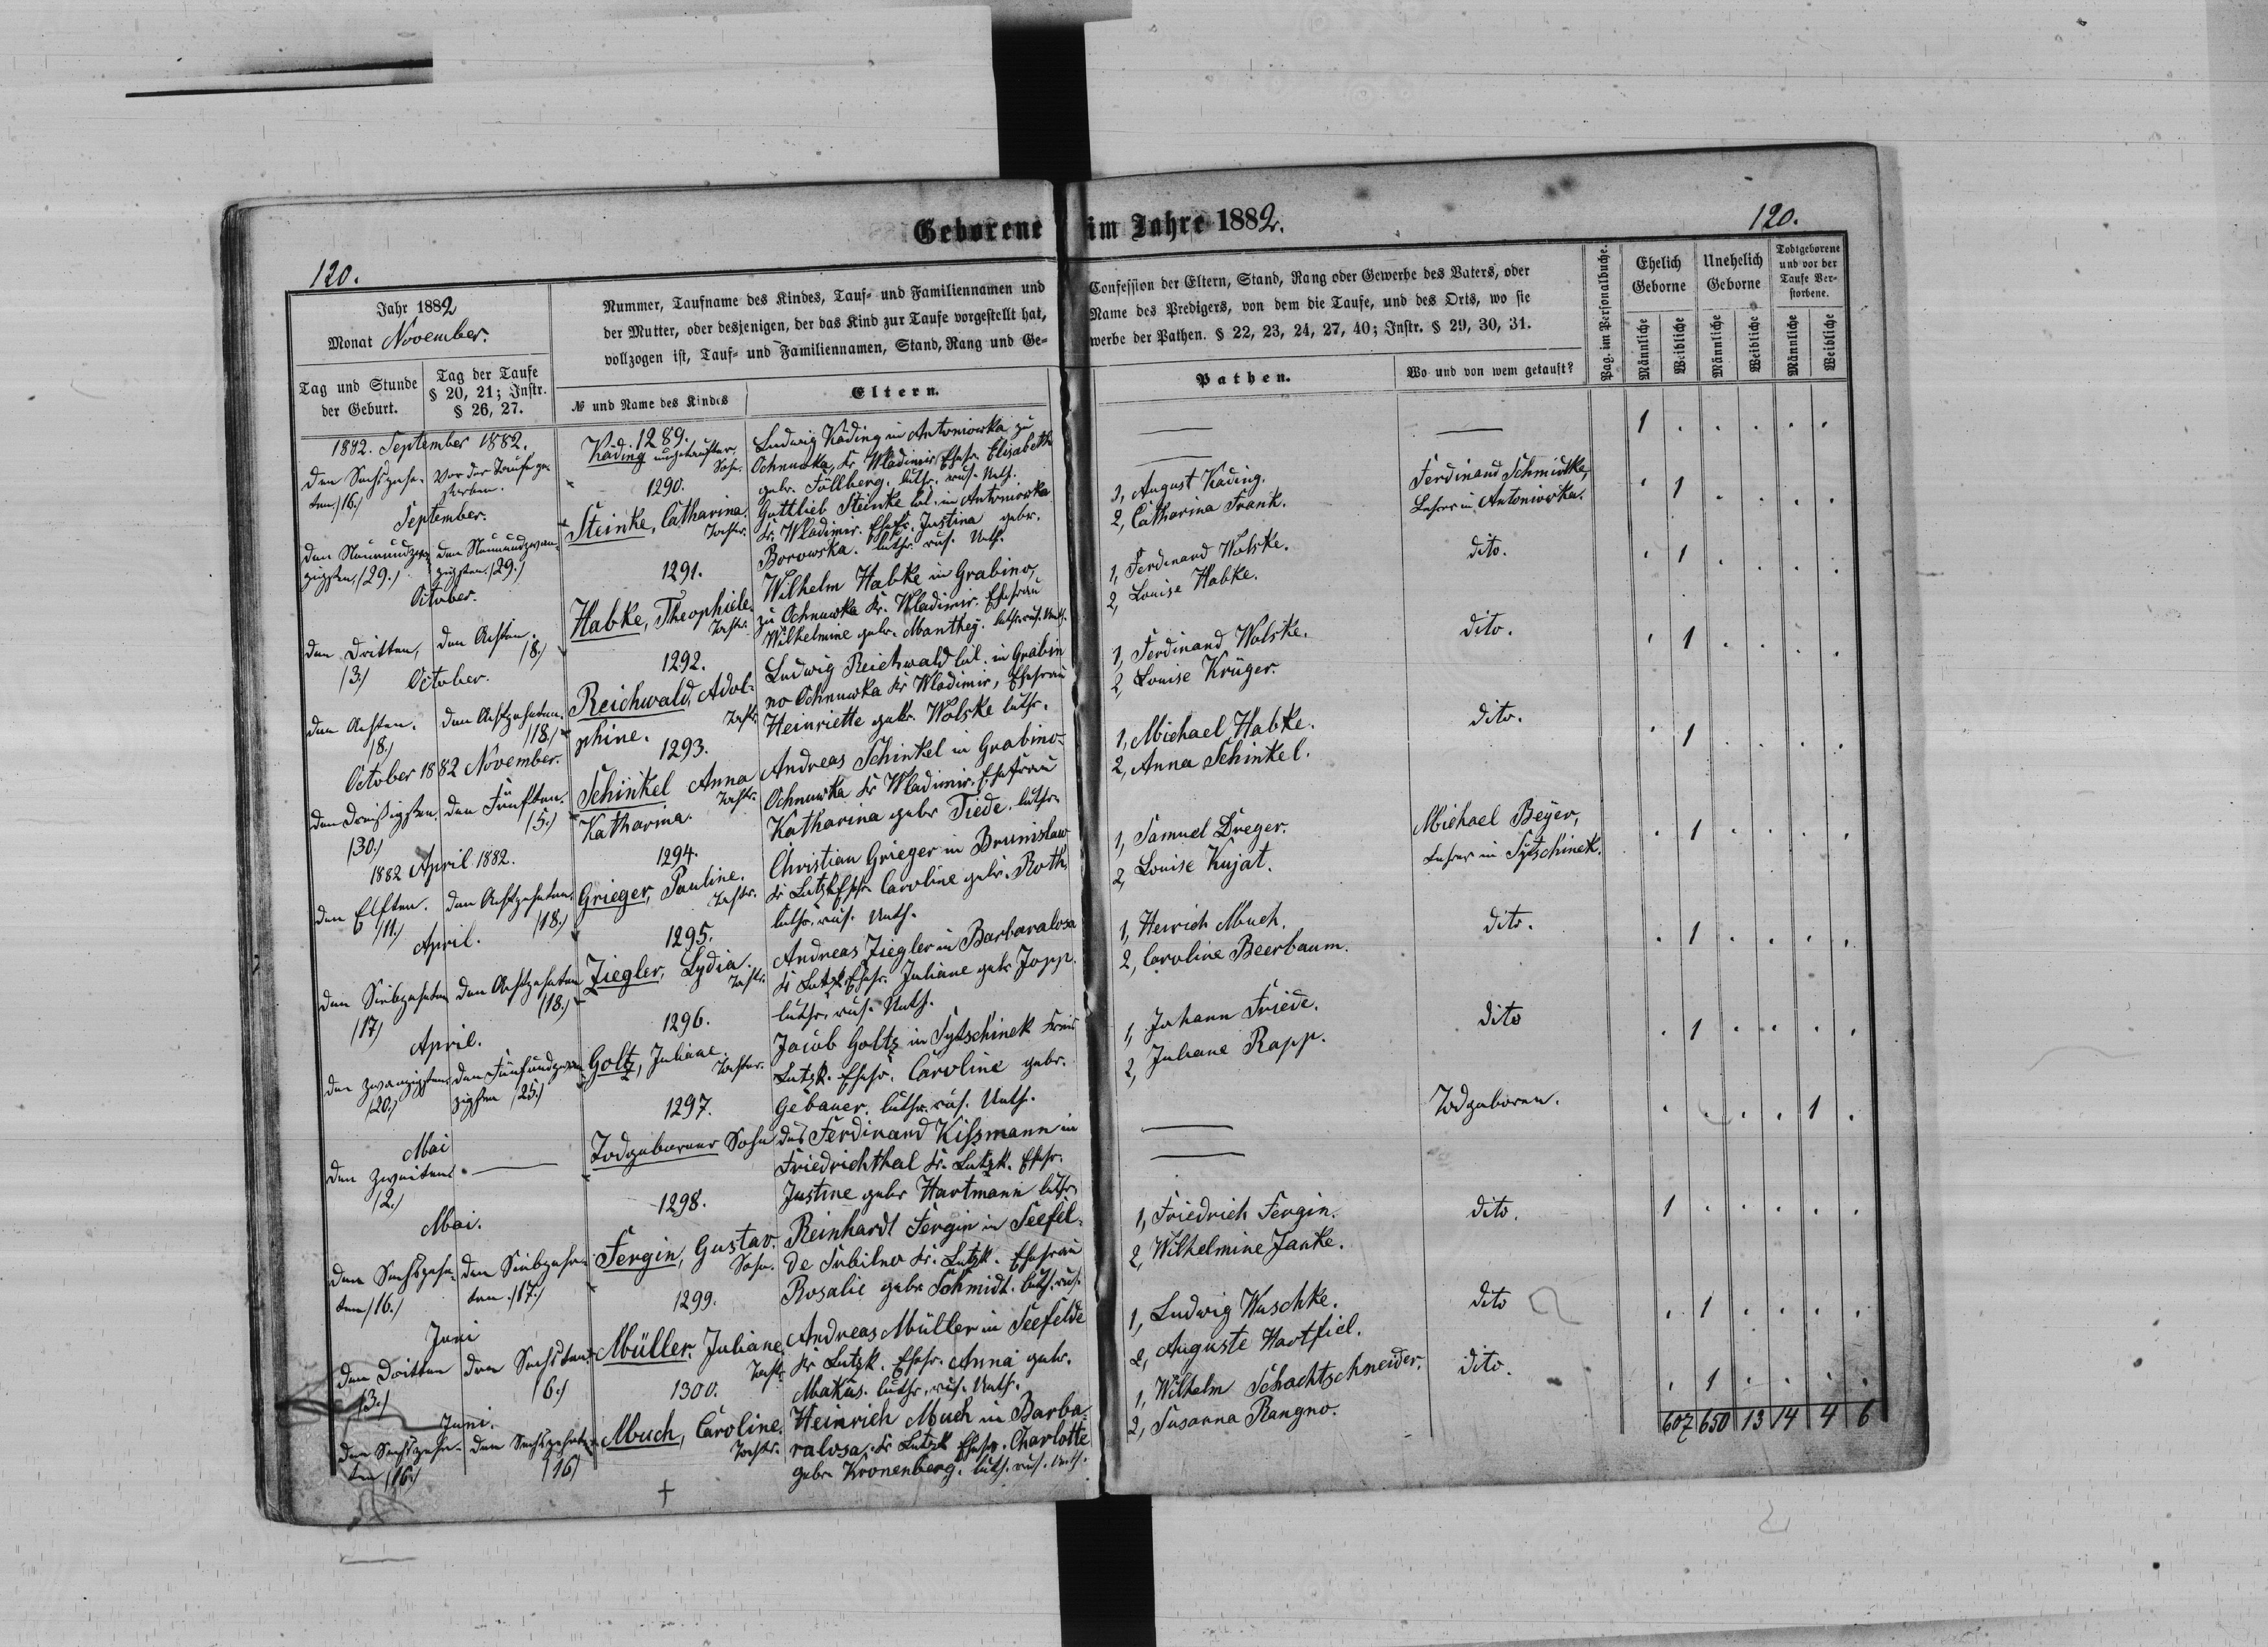 Geborene im Jahre 1882.
120.
120.
Jahr 1882
Monat November.
Tag und Stunde der Geburt.
Tag der Taufe § 20, 21; Instr. § 26, 27.
Nummer, Taufname des Kindes, Tauf- und Familiennamen und
der Mutter, oder desjenigen, der das Kind zur Taufe vorgestellt hat,
vollzogen ist, Tauf- und Familiennamen, Stand, Rang und Ge-
№ und Name des Kindes
Eltern.
Confession der Eltern, Stand, Rang oder Gewerbe des Vaters, oder
Name des Predigers, von dem die Taufe, und des Orts, wo sie
werbe der Pathen. § 22, 23, 24, 27, 40; Instr. § 29, 30, 31.
Pathen.
Wo und von wem getauft?
Pag. im Personalbuche.
Ehelich Geborne
Unehelich Geborne
Todtgeborene und vor der Taufe Verstorbene.
Männliche
Weibliche
Männliche
Weibliche
Männliche
Weibliche
1882. September 1882.
den Sechszehn-
ten /16./
Vor der Taufe ge-
storben.
1289.
Käding ungetaufter
Sohn.
Ludwig Käding in Antoniowka zu
Ochnuwka, Kr. Wladimir, Ehefr. Elisabeth
gebr. Föllberg. luthr. rus. Unth.
1 . . . . .
September.
den Neunundzwan-
zigsten, /29./
den Neunundzwan-
zigsten. /29./
1290.
Steinke, Catharina.
Tochter.
Gottlieb Steinke col. in Antonowka
Kr. Wladimir. Ehefr. Justina gebr.
Borowska. luthr. rus. Unth.
1, August Käding.
2, Catharina Frank.
Ferdinand Schmidtke,
Lehrer in Antoniowka.
. 1 . . . .
October.
den Dritten,
/3./
den Achten.
/8./
1291.
Habke, Theophiele.
Tochtr.
Wilhelm Habke in Grabino,
zu Ochnuwka Kr. Wladimir. Ehefrau
Wilhelmine gebr. Manthey. luthr. rus. Unth.
1, Ferdinand Wolske.
2, Louise Habke.
dito.
. 1 . . . .
October.
den Achten.
/8./
den Achtzehnten.
/18./
1292.
Reichwald, Adol-
phine.
Tochtr.
Ludwig Reichwald col. in Grabin
no Ochnuwka Kr Wladimir, Ehefrau
Heinriette gebr. Wolske luthr.
1, Ferdinand Wolske.
2, Louise Krüger.
dito.
. 1 . . . .
October 1882 November.
den Dreißigsten.
/30./
den Fünften.
/5./
1293.
Schinkel Anna
Katharina.
Tochtr.
Andreas Schinkel in Grabino-
Ochnuwka Kr Wladimir. Ehefrau
Katharina gebr Tiede. luthr.
1, Michael Habke.
2, Anna Schinkel.
dito.
. 1 . . . .
1882 April 1882.
den Elften.
/11./
den Achtzehnten.
/18./
1294.
Grieger, Pauline.
Tochtr.
Christian Grieger in Brunislaw
Kr Lutzk Ehefr. Caroline gebr. Roth,
luthr. rus. Unth.
1, Samuel Dreger.
2, Louise Kujat.
Michael Beyer,
Lehrer in Sytschinek.
. 1 . . . .
April.
den Siebzehnten
/17/
den Achtzehnten
/18./
1295.
Ziegler, Lydia.
Tochtr.
Andreas Ziegler in Barbaralosa
Kr Lutzk Ehefr. Juliane gebr Jopp.
luthr. rus. Unth.
1, Heirich Much.
2, Caroline Beerbaum.
dito.
. 1 . . . .
April.
den Zwanzigsten
/20./
den Fünfundzwan-
zigsten /25./
1296.
Goltz, Juliane.
Tochter.
Jacob Goltz in Sytschinek Kreis
Lutzk. Ehefr. Caroline gebr.
Gebauer. luthr. rus. Unth.
1, Johann Friede.
2, Juliane Rapp.
dito
. 1 . . . .
Mai
den Zweiten.
/2./
1297.
Todgeborner Sohn des Ferdinand Kissmann in
Friedrichthal Kr. Lutzk. Ehefr.
Justine gebr Hartmann luthr
Todgeboren.
. . . . 1 .
Mai.
den Sechszehn-
ten /16./
den Siebzehn-
ten. /17./
1298.
Fergin, Gustav.
Sohn.
Reinhardt Fergin in Seefel-
de Kr. Lutzk. Ehefrau
Rosalie gebr Schmidt. luth. rus.
1, Friedrich Fergin.
2, Wilhelmine Janke.
dito.
1 . . . . .
Juni
den Dritten
/3./
den Sechsten
/6./
1299.
Müller, Juliane
Tochtr.
Andreas Müller in Seefelde
Kr Lutzk. Ehefr. Anna gebr.
Makus. luthr. rus. Unth.
1, Ludwig Waschke.
2, Auguste Hartfiel.
dito
. 1 . . . .
Juni.
den Sechszehn-
ten /16./
den Sechszehnten
/16/
1300.
Much, Caroline.
Tochtr.
Heinrich Much in Barba-
ralosa. Kr Lutzk Ehefr. Charlotte
gebr Kronenberg. luth. rus. Unth.
1, Wilhelm Schachtschneider.
2, Susanna Rangno.
dito.
. 1 . . . .
607 650 13 14 4 6